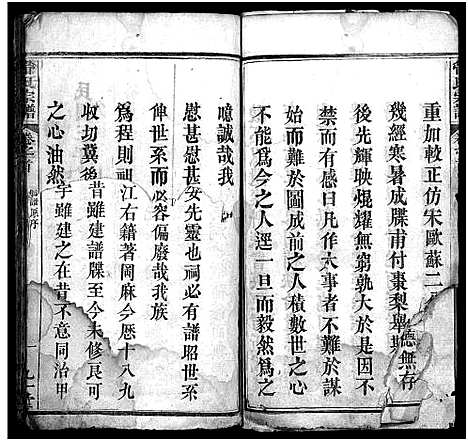 重加較正仿宋歐蘇二
幾經寒暑成牒甫付棗梨舉斯德無存
後先輝映焜耀無窮孰大於前
禁而有感曰凡作大事者不難於謀
始而難於圖成前之人積數世之心
不能為今之人逕一旦而毅然為之
噫誠哉我
慰甚慰甚安先靈也祠必有譜昭世系
伸世系不容偏廢哉我族
為程則祖江右籍著岡麻今歷十八九
收切冀後昔雖建譜牒至今未修良可
之心油然宇雖建之在昔不意同治甲
氏宗譜
卷之首
原序